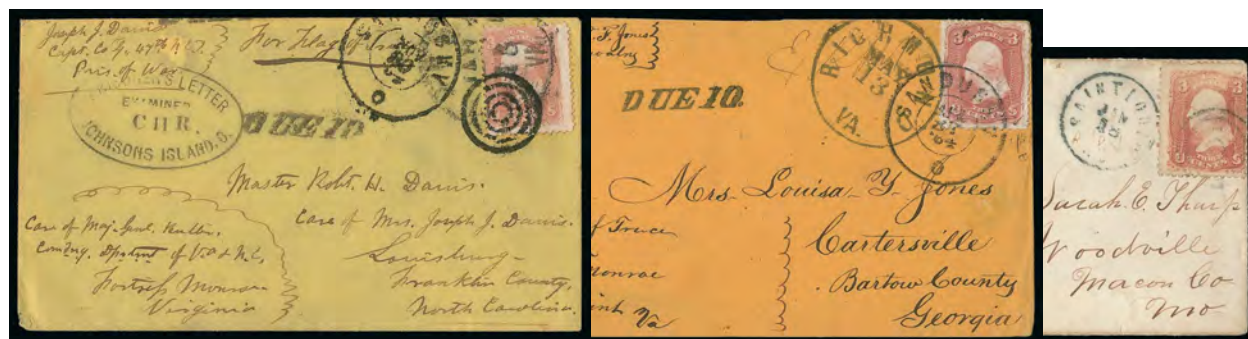 Joseph J. Davis
Capt. Co G. 47th N.C.T.
Pris. of War
For Flag of
SANDUSKY
O
3
PRISONER'S LETTER
EXAMINED
CHR.
JOHNSONS ISLAND. O.
DUE 10.
Master Robt. H. Davis.
Care of Mrs. Joseph J. Davis.
Louisburg
Franklin County,
North Carolina.
Care of Maj. Genl. Butler.
Comdng. Dpartmt of Va & N.C.
Fortress Monroe
Virginia
Jones
DUE 10.
RICHMOND
MAY
13
VA.
SANDUSKY
O
3 3
U S
Mrs. Louisa Y. Jones
Cartersville
Bartow County
Georgia
f Truce
Monroe
int Va
SAINT
JUN
3 3
U S
THREE
CENTS
Sarah. E. Tharp
Woodville
Macon Co
Mo